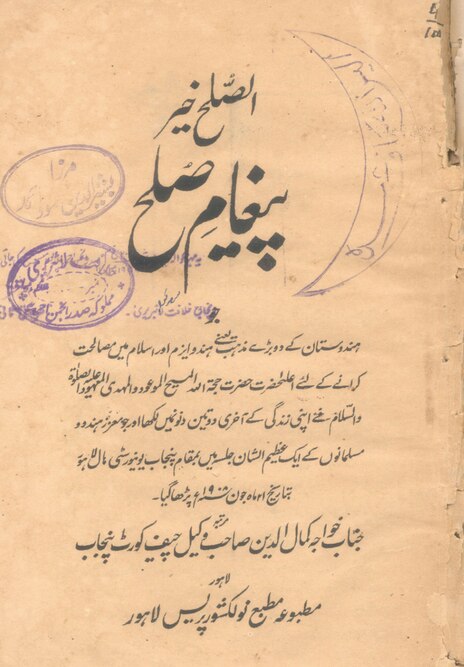 الصّلح خیر
پیغامِ صلح
جو
ہندوستان کے دو بڑے مذہب یعنے ہندوایزم اور اسلام میں مصالحت
کرانے کے لئے اعلیٰحضرت حضرت حجۃ اللہ المسیح الموعود والمہدی المعہود علیہ الصلوٰۃ
والسّلام نے اپنی زندگی کے آخری دو تین دنوں میں لکھا اور جو معزز ہندو و
مسلمانوں کے ایک عظیم الشّان جلسہ میں بمقام پنجاب یونیورسٹی ہال لاہور
بتاریخ ۲۱ ماہ جون ۱۹۰۸ء پڑھا گیا۔
جناب خواجہ کمال الدین صاحب وکیل چیف کورٹ پنجاب
لاہور
مطبوعہ مطبع نولکشور پریس لاہور